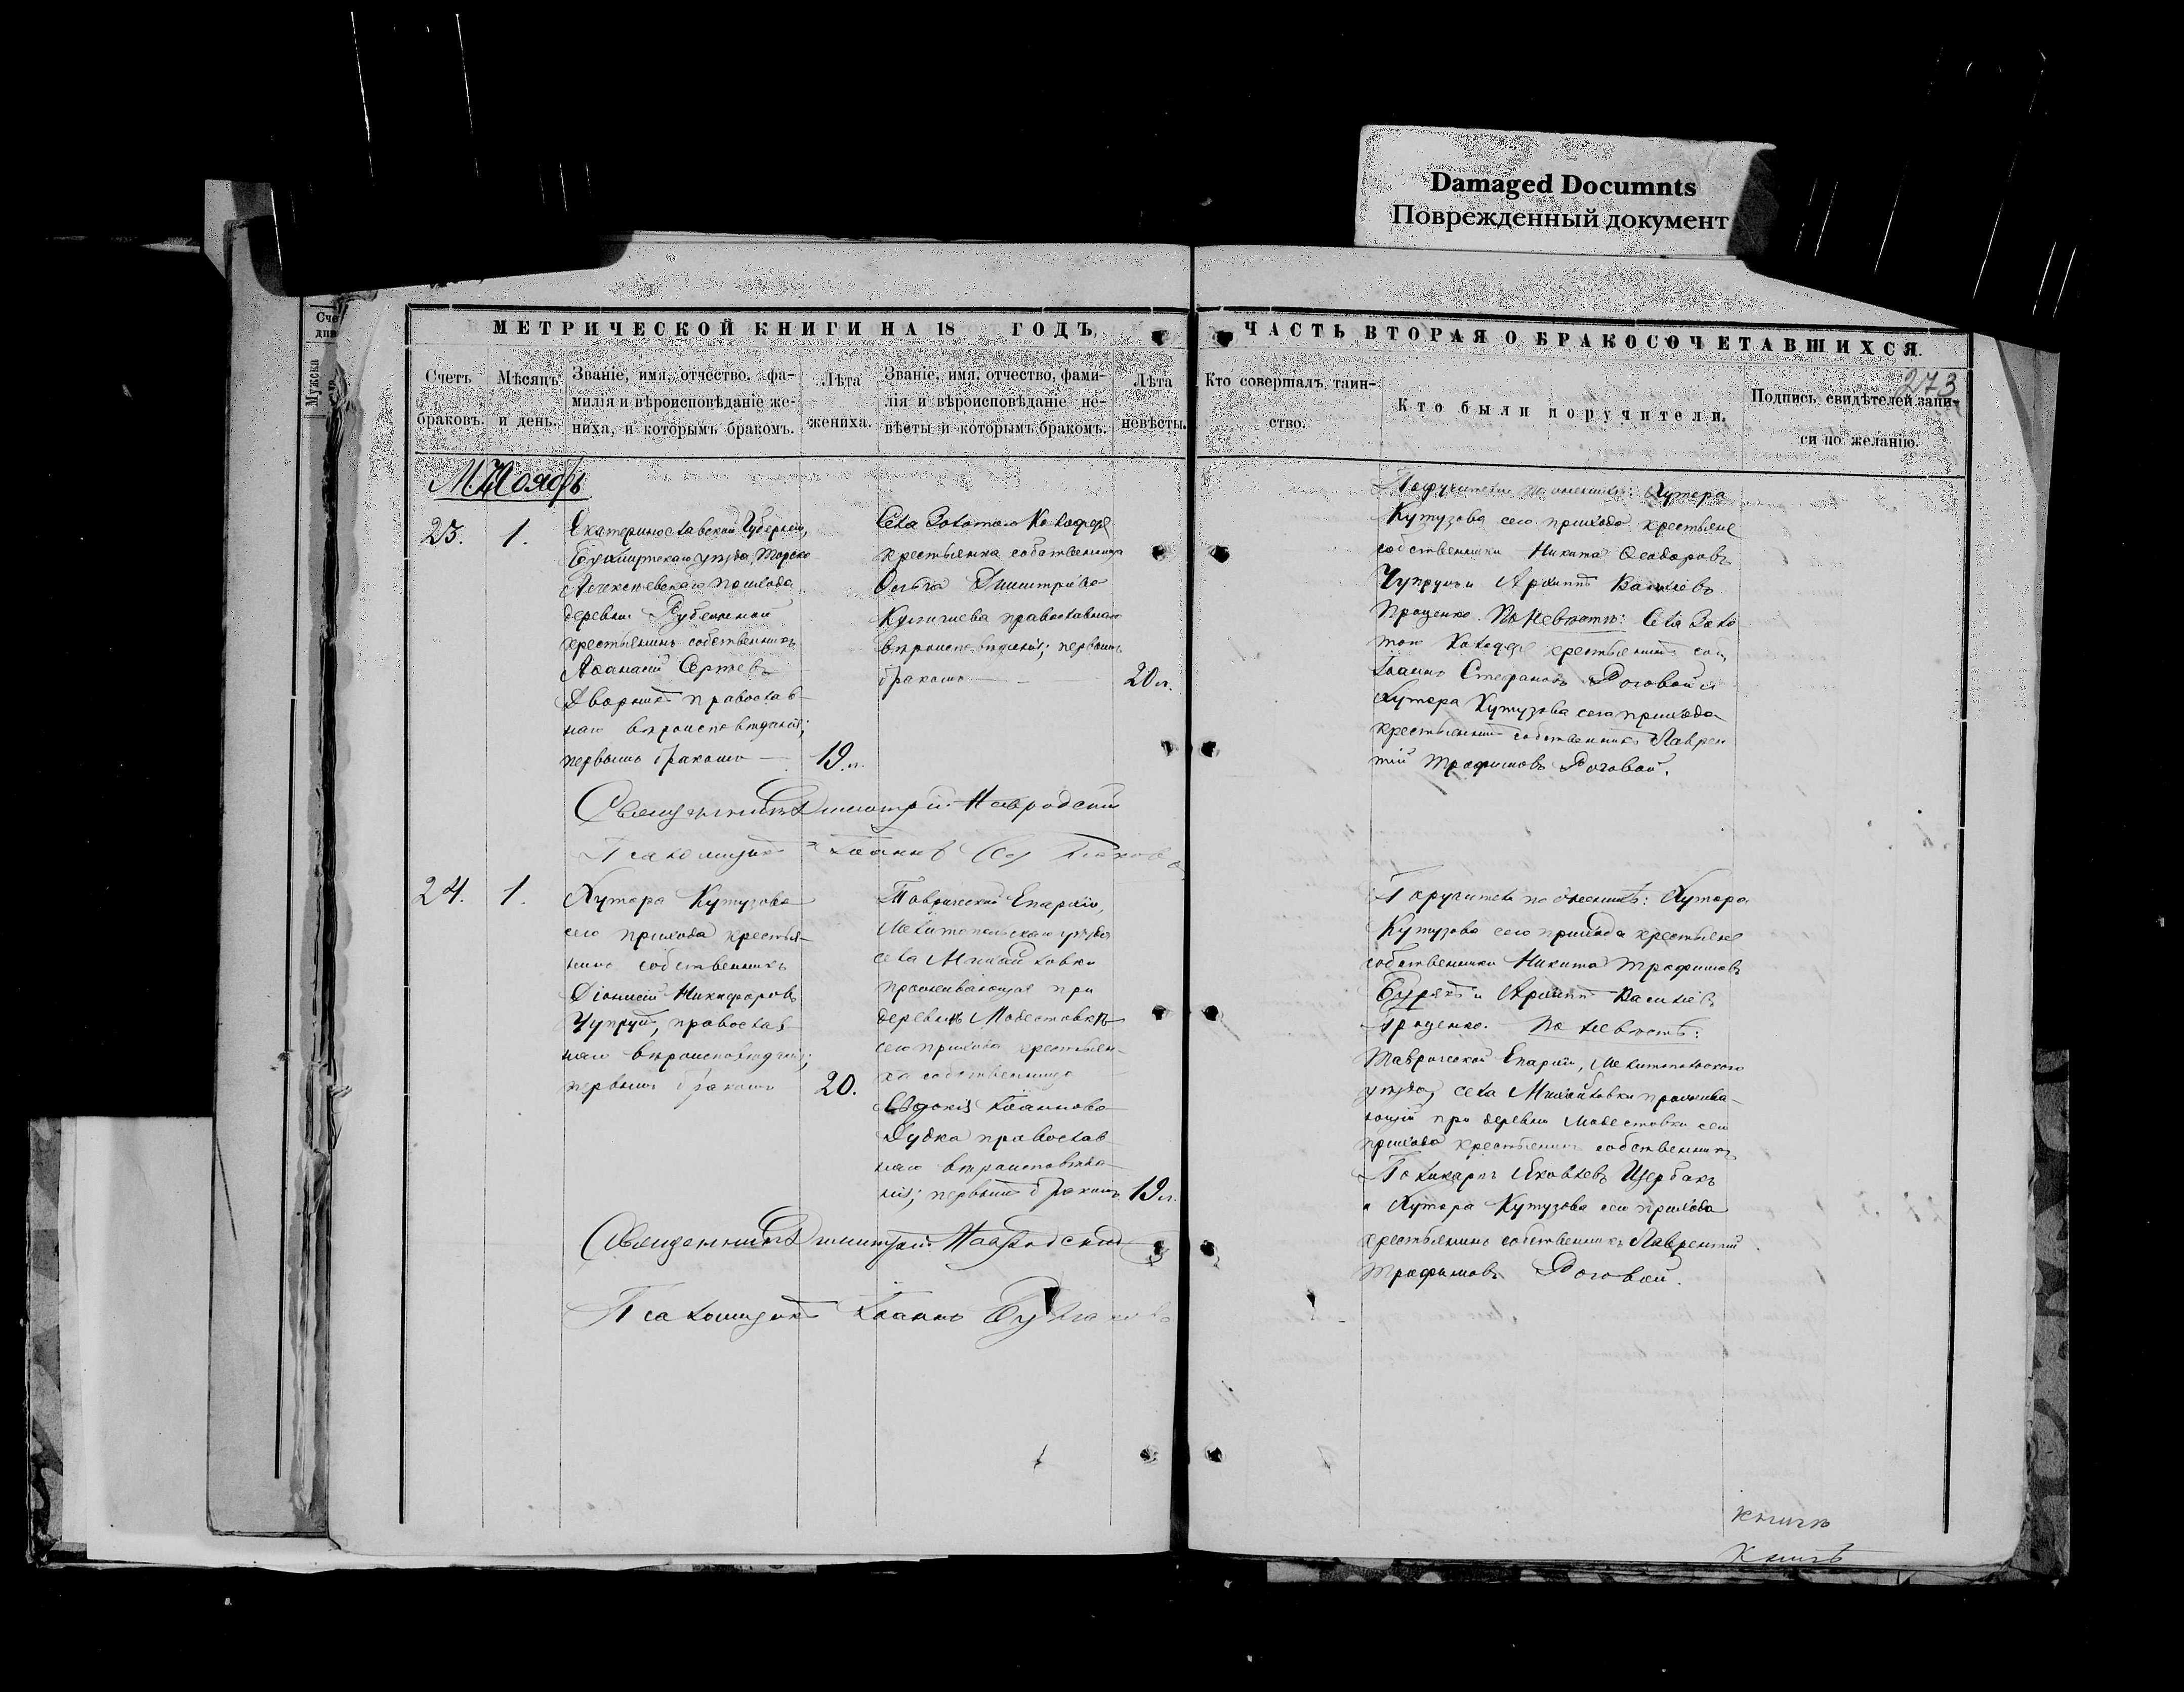 Damaged Documnts
Поврежденный документ
МЕТРИЧЕСКОЙ КНИГИ НА 18 ГОДЪ,
ЧАСТЬ ВТОРАЯ О БРАКОСОЧЕТАВШИХСЯ.
273
Счетъ браковъ.
Мѣсяцъ и день.
Званіе, имя, отчество, фа-
милія и вѣроисповѣданіе же-
ниха, и которымъ бракомъ.
Лѣта жениха.
Званіе, имя, отчество, фами-
лія и вѣроисповѣданіе не-
вѣсты и которымъ бракомъ.
Лѣта невѣсты.
Кто совершалъ таин-
ство.
Кто были поручители.
Подпись свидѣтелей запи-
си по желанію.
Мужска
М. Ноябрь
23.
1.
Екатеринославской Губерніи,
Бахмутскаго уѣзда,
Алексѣевскаго прихода
деревни Рубежной
крестьянинъ собственникъ
Аѳанасій Сергѣевъ
Дворникъ православ-
наго вѣроисповѣданія;
первымъ бракомъ
19. л.
Села Золотого Колодезя
крестьянка собственница
Ольга Димитріева
православнаго
вѣроисповѣданія; первымъ
бракомъ
20 л.
Поручители по женихѣ: Хутора
Кутузова сего прихода крестьяне
собственники Никита Ѳеодоровъ
Чупрунъ и Архиппъ Васильевъ
Проценко. По невѣстѣ: Села Золо
того Колодезя крестьянинъ соб,
Іоаннъ Стефановъ Роговой и
Хутора Кутузова сего прихода
крестьянинъ собственникъ Лаврен
тій Трофимовъ Роговой.
Священникъ Димитрій Навродскій
Псаломщикъ Іоаннъ
24.
1.
Хутора Кутузова
сего прихода крестья-
нинъ собственникъ
Діонисій Никифоровъ
Чупрунъ, православ-
наго вѣроисповѣданія;
первымъ бракомъ
20.
Таврической Епархіи,
Мелитопольскаго уѣзда
села Михайловки
проживающая при
деревнѣ Модестовкѣ
сего прихода крестьян-
ка собственница
Евдокія Іоаннова
Дудка православ
наго вѣроисповѣда-
нія; первымъ бракомъ
19 л.
Поручители по женихѣ: Хутора
Кутузова сего прихода крестьяне
собственники Никита Трофимовъ
Бурякъ и Архиппъ Васильевъ
Проценко. По невѣстѣ:
Таврической Епархіи, Мелитопольскаго
уѣзда, села Михайловки прожива-
ющій при деревни Модестовки сего
прихода крестьянинъ собственникъ
Поликарпъ Яковлевъ Щербакъ
и Хутора Кутузова сего прихода
крестьянинъ собственникъ Лаврентій
Трофимовъ Роговой.
Священникъ Димитрій Навродскій
Псаломщикъ Іоаннъ